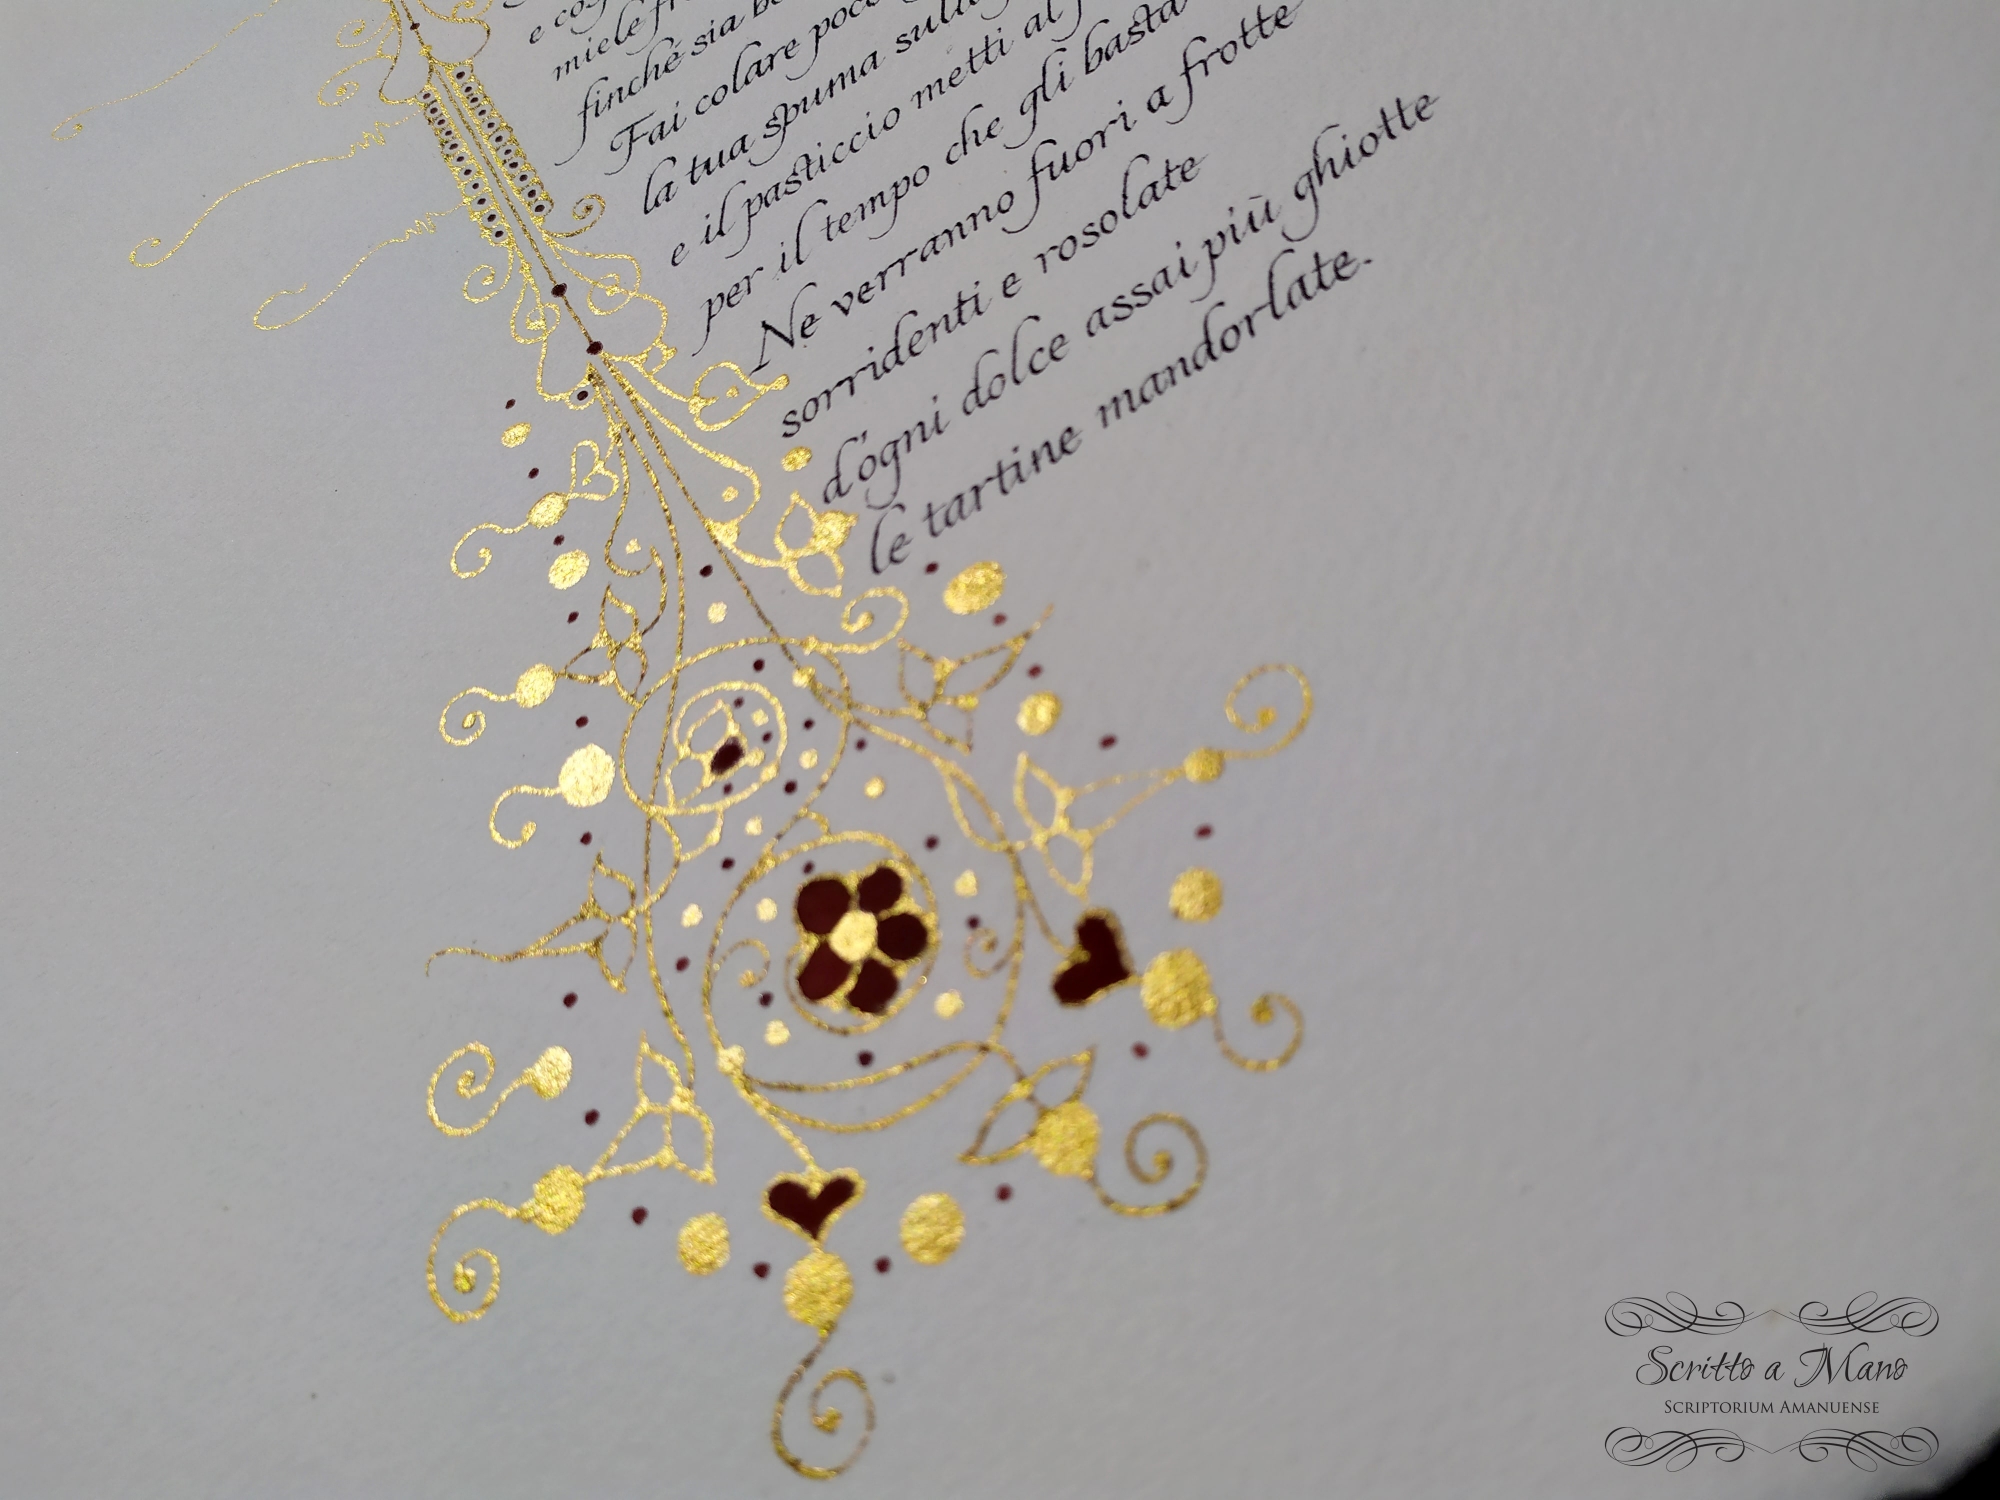 e cog
miele fr
finché sia b
Fai colare poco
la tua spuma sull
e il pasticcio metti al f
per il tempo che gli basta
Ne verranno fuori a frotte
sorridenti e rosolate
d'ogni dolce assai più ghiotte
le tartine mandorlate.
Scritto a Mano
Scriptorium Amanuense